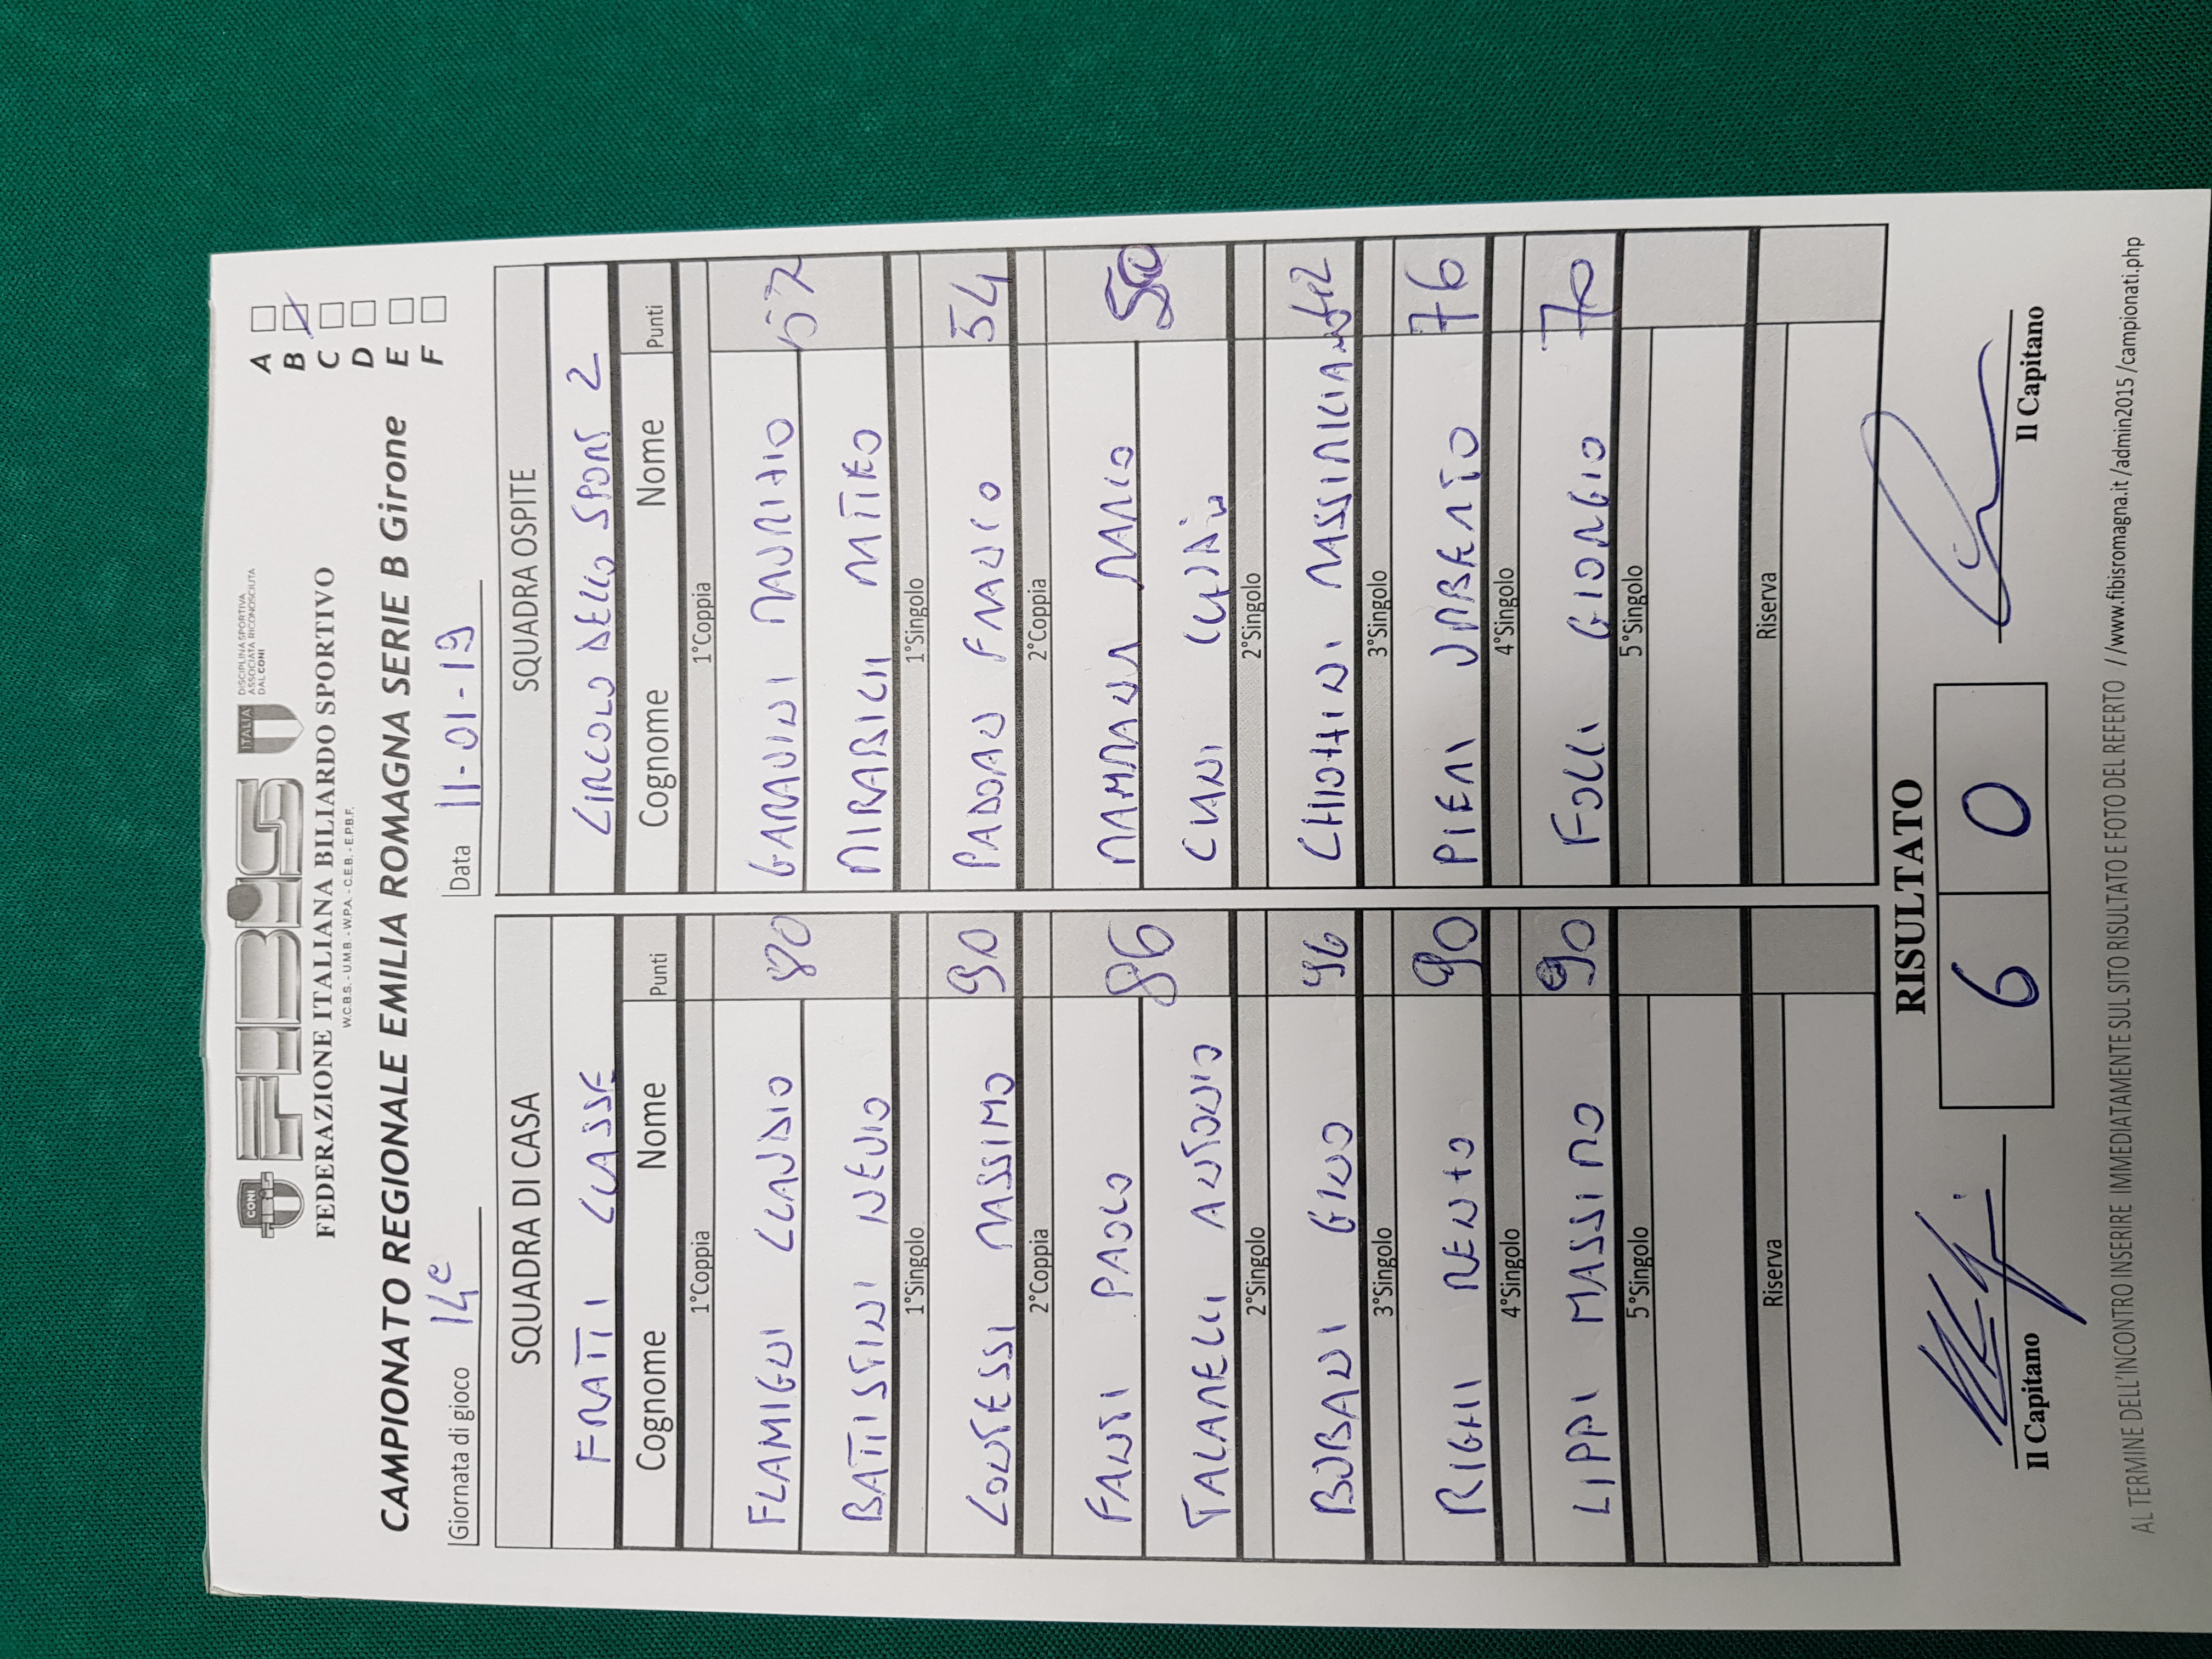 CONI FIBIS ITALIA DISCIPLINA SPORTIVA
ASSOCIATA RICONOSCIUTA
DAL CONI
FEDERAZIONE ITALIANA BILIARDO SPORTIVO
W.C.B.S. - U.M.B. - W.P.A. - C.E.B. - E.P.B.F.
CAMPIONATO REGIONALE EMILIA ROMAGNA SERIE B Girone
A
B
C
D
E
F
Giornata di gioco 14e Data 11-01-19
SQUADRA DI CASA
FRATTI CLASSE
Cognome Nome Punti
1°Coppia
FLAMIGNI CLAUDIO 80
BATTISTINI NEVIO
1°Singolo
CONTESSI MASSIMO 90
2°Coppia
FANTI PAOLO 86
TALAMELLI ANTONIO
2°Singolo
BUBANI GINO 96
3°Singolo
RIGHI RENTO 90
4°Singolo
LIPPI MASSIMO 90
5°Singolo
Riserva
SQUADRA OSPITE
CIRCOLO DELLO SPORT 2
Cognome Nome Punti
1°Coppia
GARAVINI MAURIZIO 57
MIRABILII MIRKO
1°Singolo
PADOAN FRANCO 54
2°Coppia
MARIO 50
CIANI
2°Singolo
MASSIMILIANO
3°Singolo
PIERI UMBERTO 76
4°Singolo
FOLLI GIORGIO 70
5°Singolo
Riserva
RISULTATO
6 0
Il Capitano Il Capitano
AL TERMINE DELL'INCONTRO INSERIRE IMMEDIATAMENTE SUL SITO RISULTATO E FOTO DEL REFERTO //www.fibisromagna.it/admin2015/campionati.php